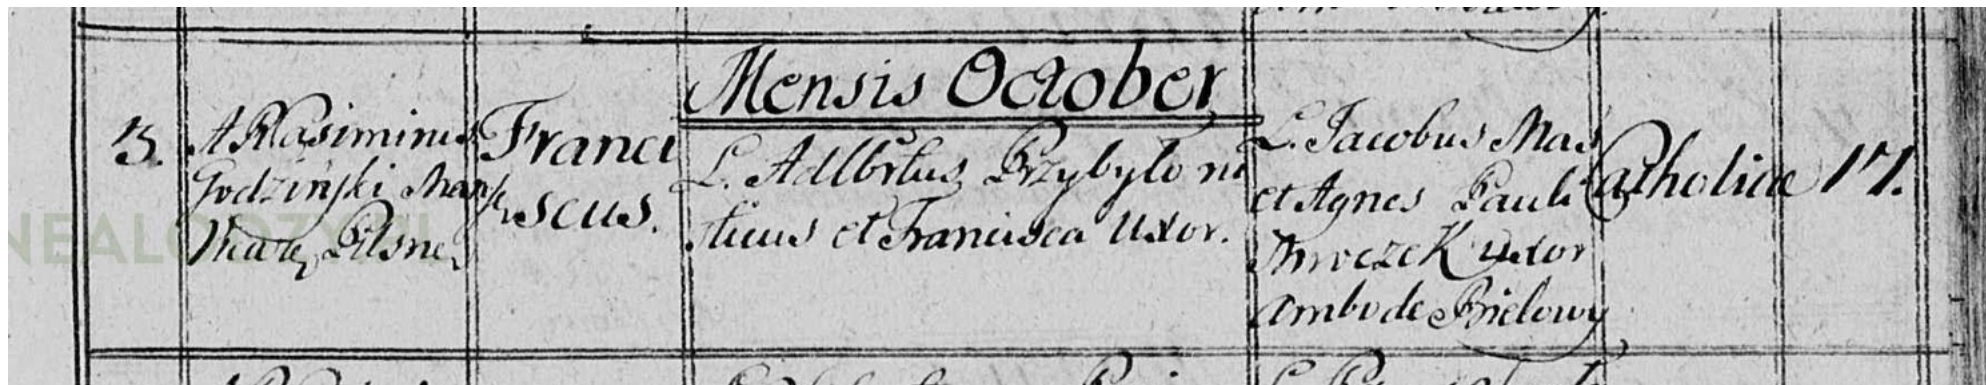 Mensis October
3.
A R Casiminus
Godziński Mans
Vicar Pilsne
Franci
scus.
L. Adlbrtus Przybyło ru
sticus et Francisca Uxor.
L. Jacobus Mas
et Agnes Pauli
Mroczek uxor
ambo de Bielowy
Catholicae
17.